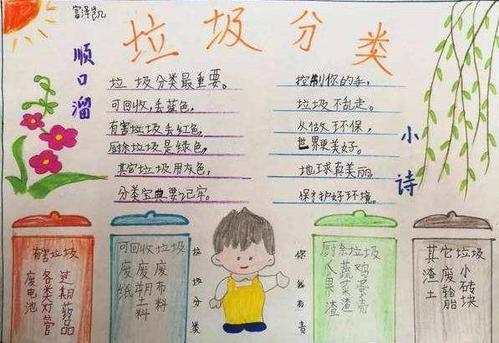 富泽凯
垃圾分类
顺口溜
垃圾分类最重要。
可回收,丢蓝色,
有害垃圾丢红色,
厨余垃圾是绿色,
其它垃圾用灰色,
分类宝典要记牢。
控制你的手,
垃圾不乱走。
从做环保,
世界更美好。
地球真美丽
保护好环境。
小诗
有害垃圾
过期药品
各类灯管
废电池
可回收垃圾
废布料
废朔土料
废纸
垃圾分类
你我有责
厨余垃圾
鸡蛋壳
蔬菜渣
瓜果渣
其它垃圾
小砖块
废轮胎
渣土